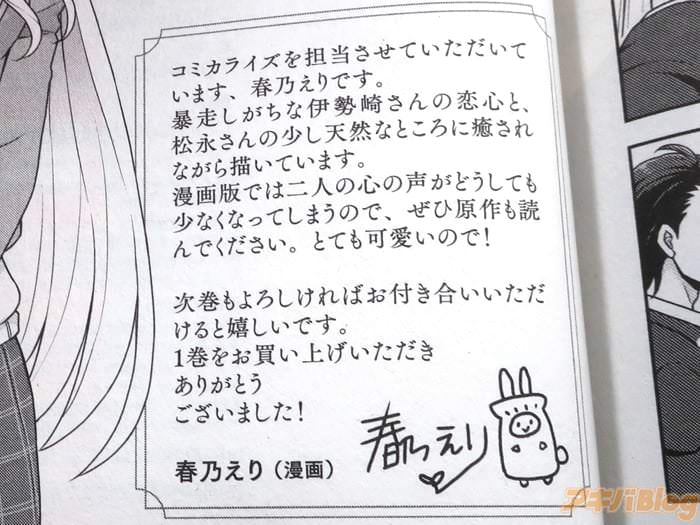 コミカライズを担当させていただいて
います、春乃えりです。
暴走しがちな伊勢崎さんの恋心と、
松永さんの少し天然なところに癒され
ながら描いています。
漫画版では二人の心の声がどうしても
少なくなってしまうので、ぜひ原作も読
んでください。とても可愛いので!
次巻もよろしければお付き合いいただ
けると嬉しいです。
1巻をお買い上げいただき
ありがとう
ございました!
春乃えり(漫画)
春乃えり
アキバBlog